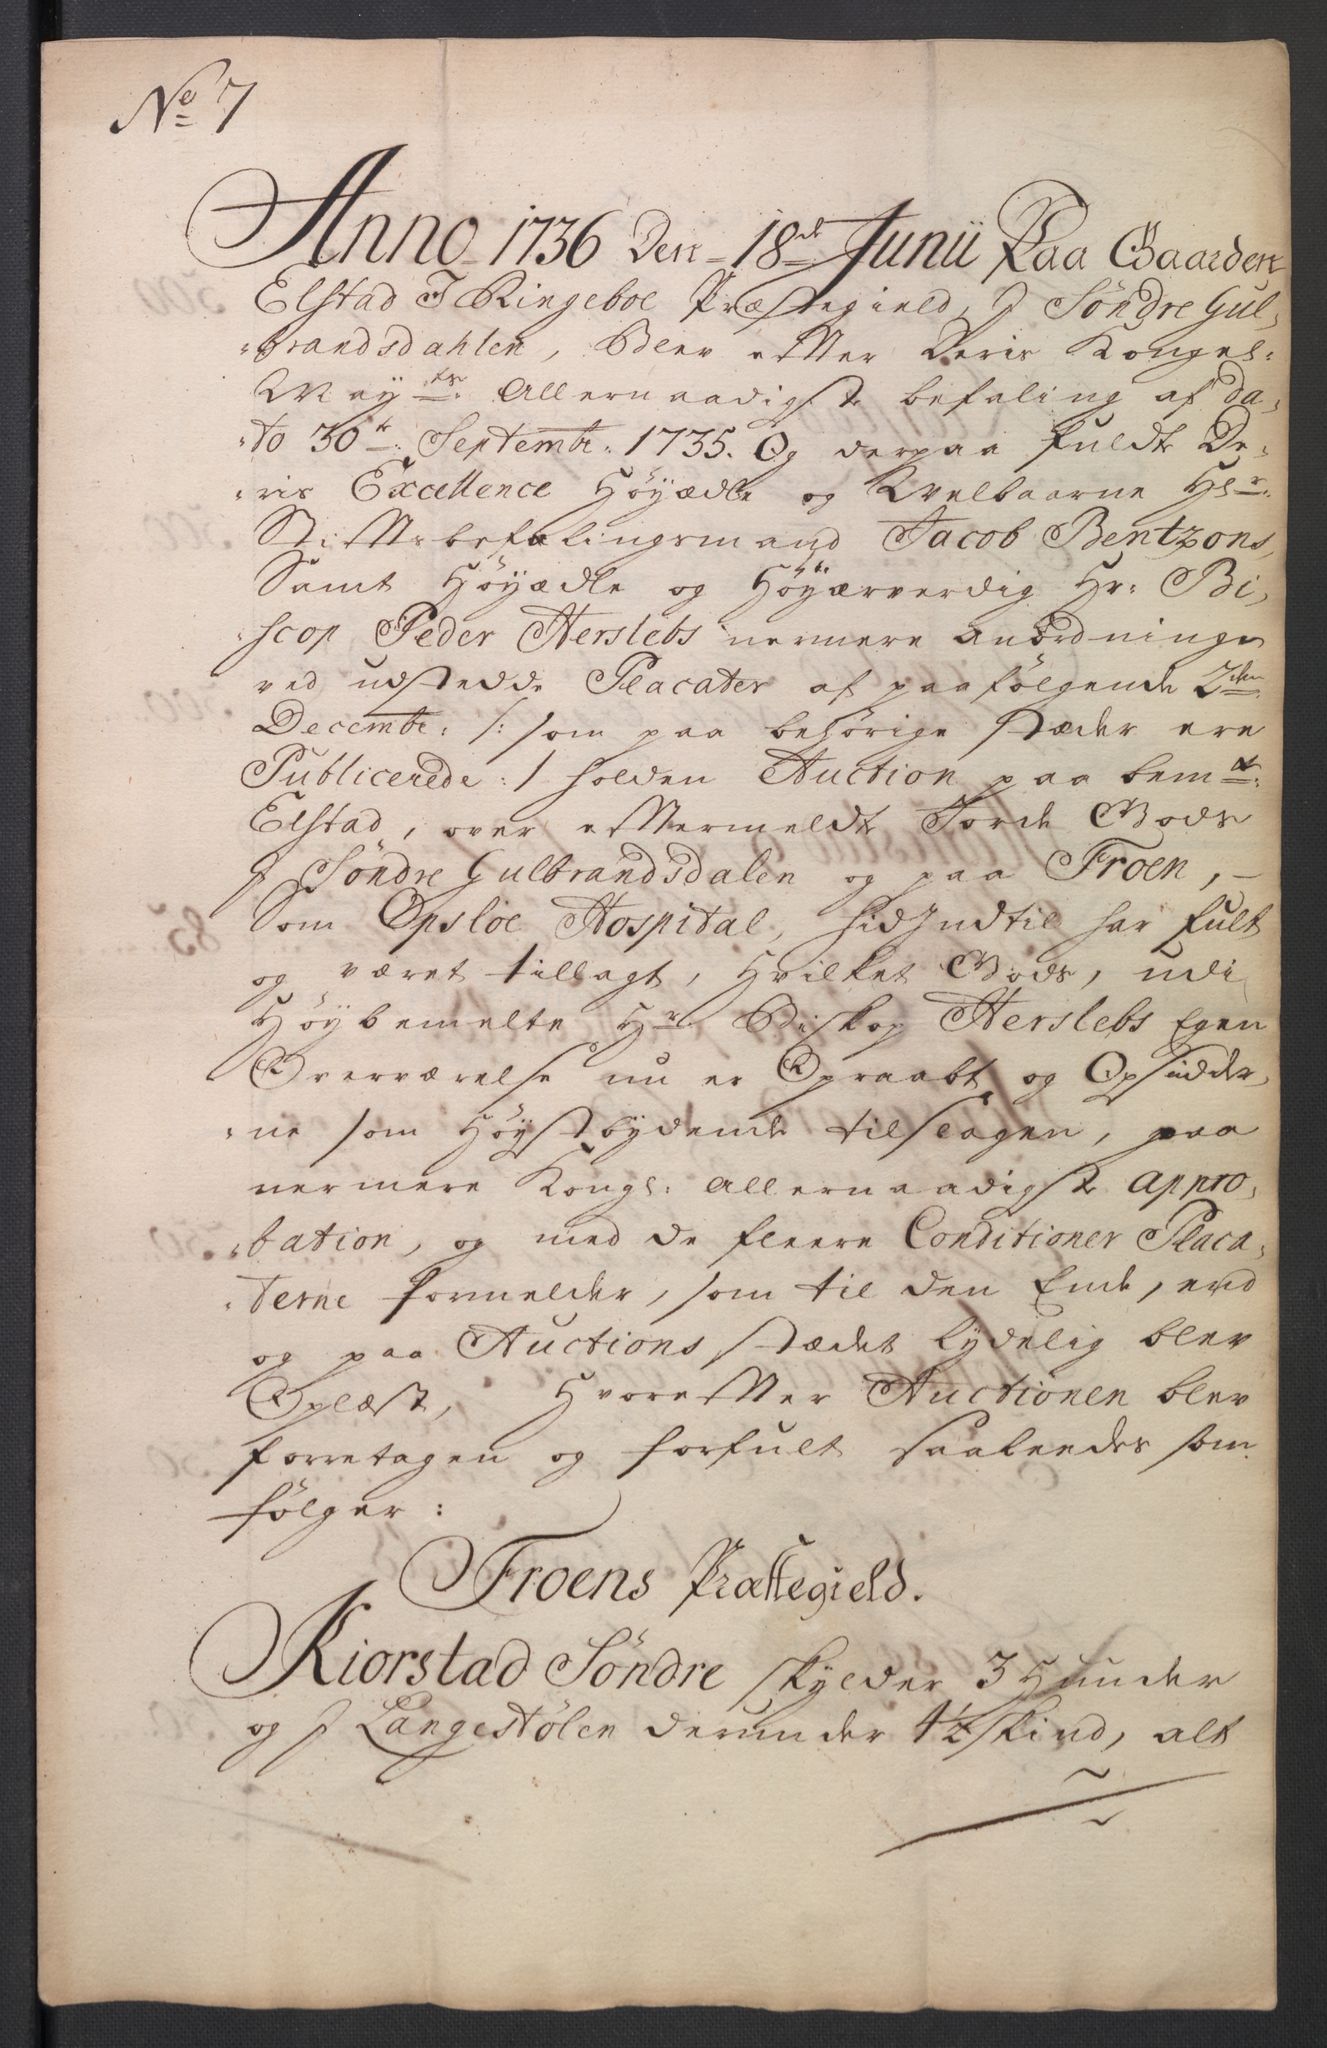 No 7
Anno 1736 Den 18de Junii Paa Gaarden
Elstad I Ringeboe Præstegield, I Söndre Gul-
brandsdahlen, Blev efter Deris Kongel:
May ts: Allernaadigste befaling af da-
to 30te Septembr: 1735. Og derpaa fuldte De-
ris Excellence Höyædle og Welbaarne Hr:
Stiftsbefalingsmand Jacob Bentzons,
Samt Höyædle og Höyærverdig Hr: Bi-
scop Peder Herslebs nermere anordninge
ved udstedde Placater af paafölgende 2den
Decembr: /: som paa behörige stæder ere
Publicerede :/ holden Auction paa bemte:
Elstad, over eftermeldte Jorde Gods
J Söndre Gulbrandsdalen og paa Froen, -
Som Opsloe Hospital, hidJndtil har fult
og været tillagt, Hvilket Gods, udi
Höybemelte Hr. Biskop Herslebs Egen
Overværelse nu er Opraabt og Opsidder-
ne som Höystbydende tilslagen, paa
nermere Kongl: Allernaadigste appro-
bation, og med de fleere Conditioner Placa-
terne formelder, som til den Ende, end
og paa Auctions stædet lydelig blev
Oplæst, Hvorefter Auctionen blev
forretagen og forfult saaleedes som
fölger:
Froens Præstegield.
Kiorstad Söndre skylder 3 Huuder
og J Langestölen derunder 1½ skind, alt